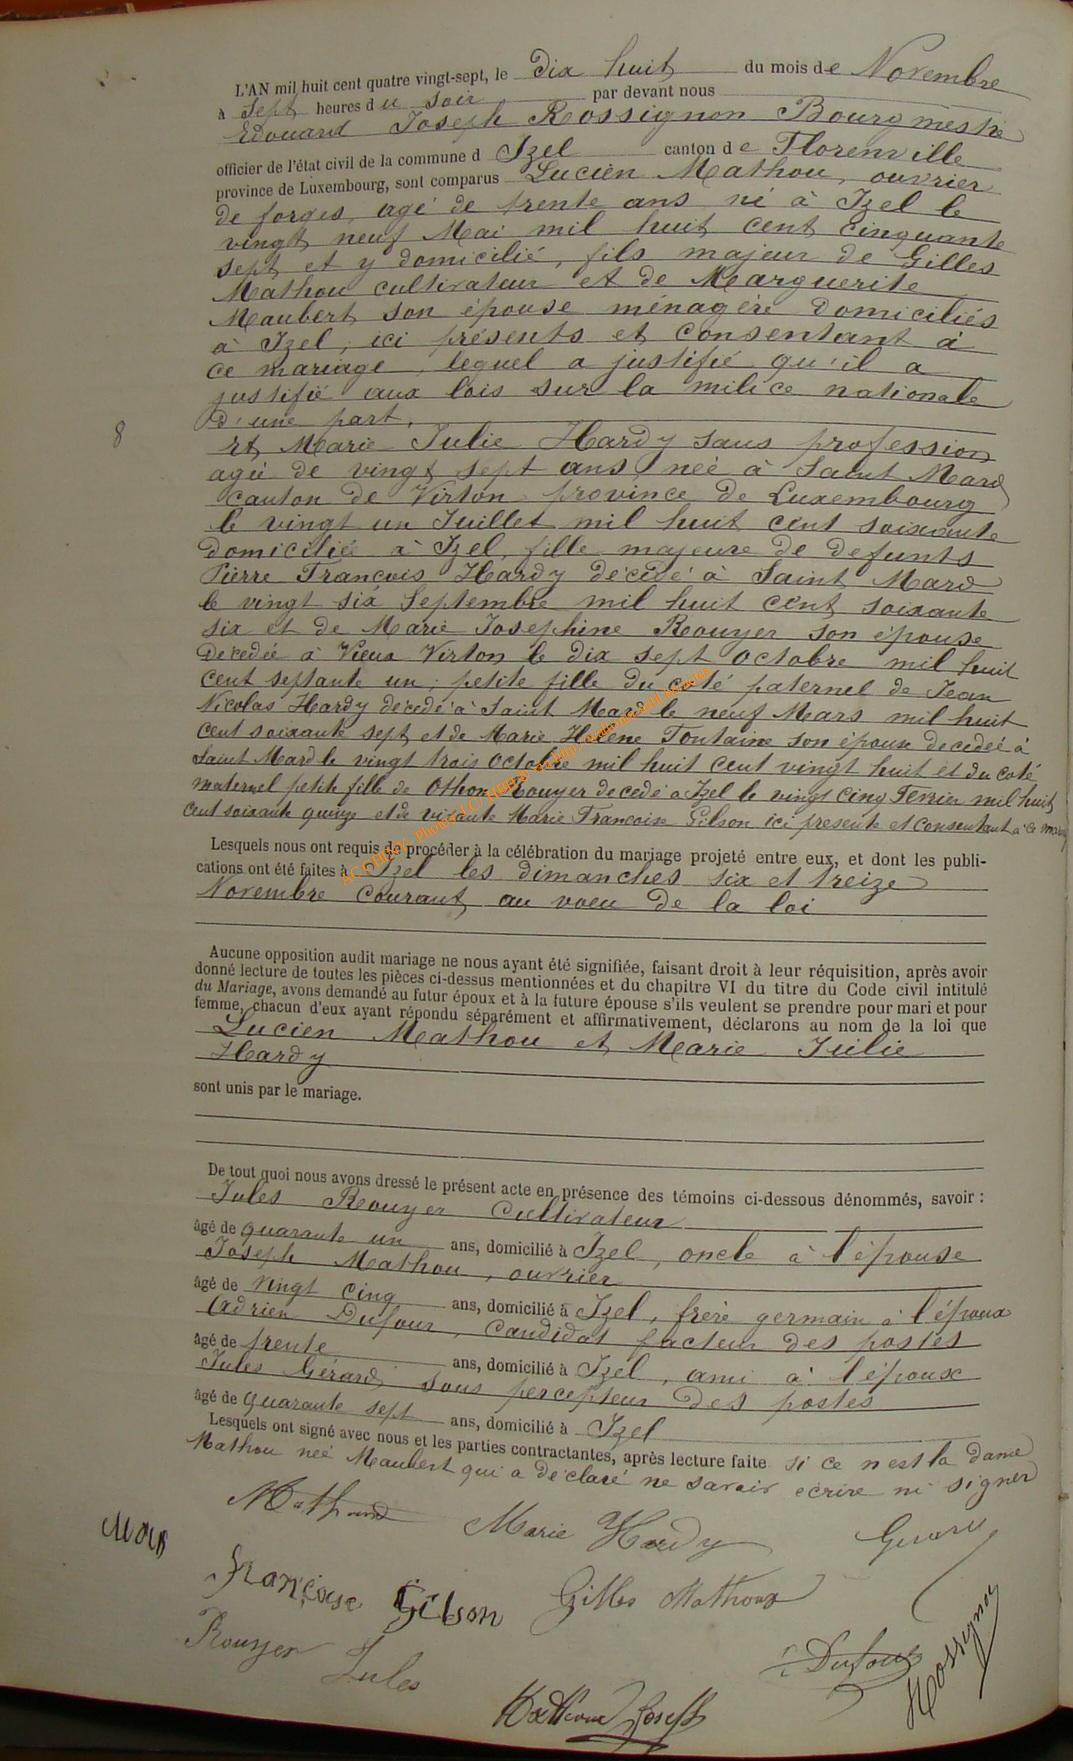 L'AN mil huit cent quatre vingt-sept, le dix huit du mois de Novembre
à Sept heures du soir par devant nous
Edouard Joseph Rossignon Bourgmestre
officier de l'état civil de la commune d Izel canton de Florenville
province de Luxembourg, sont comparus Lucien Mathou, ouvrier
de forges, agé de trente ans né à Izel le
vingt neuf Mai mil huit cent cinquante
sept et y domicilié, fils majeur de Gilles
Mathou cultivateur et de Marguerite
Maubert son épouse ménagère domiciliés
à Izel, ici présents et consentant à
ce mariage, lequel a justifié qu'il a
justifié aux lois sur la milice nationale
d'une part,
8
et Marie Julie Hardy sans profession
agée de vingt sept ans, née à Saint Mard
canton de Virton province de Luxembourg
le vingt un Juillet mil huit cent soixante
domiciliée à Izel, fille majeure de defunts
Pierre François Hardy décédé à Saint Mard
le vingt six Septembre mil huit cent soixante
six et de Marie Josephine Rouyer son épouse
decedée à Vieux Virton le dix sept octobre mil huit
cent septante un; petite fille du coté paternel de Jean
Nicolas Hardy décédé à Saint Mard le neuf Mars mil huit
cent soixante sept et de Marie Helene Fontaine son épouse decedeé à
Saint Mard le vingt trois octobre mil huit cent vingt huit et du coté
maternel petite fille de Othon Rouyer decedé a Izel le vingt cinq Fevrier mil huit
cent soixante quinze et de vivante Marie Francoise Gilson ici presente et consentant à ce
Lesquels nous ont requis de procéder à la célébration du mariage projeté entre eux, et dont les publi-
cations ont été faites à Izel les dimanches six et treize
Novembre courant au voeu de la loi
Aucune opposition audit mariage ne nous ayant été signifiée, faisant droit à leur réquisition, après avoir
donné lecture de toutes les pièces ci-dessus mentionnées et du chapitre VI du titre du Code civil intitulé
du Mariage, avons demandé au futur époux et à la future épouse s'ils veulent se prendre pour mari et pour
femme, chacun d'eux ayant répondu séparément et affirmativement, déclarons au nom de la loi que
Lucien Mathou et Marie Julie
Hardy
sont unis par le mariage.
De tout quoi nous avons dressé le présent acte en présence des témoins ci-dessous dénommés, savoir :
Jules Rouyer Cultivateur
âgé de quarante un ans, domicilié à Izel, oncle à l'épouse
Joseph Mathou, ouvrier
âgé de vingt cinq ans, domicilié à Izel, frère germain à l'époux
Adrien Dufour, candidat facteur des postes
âgé de trente ans, domicilié à Izel, ami à l'épouse
Jules Gérard sous percepteur des postes
âgé de quarante sept ans, domicilié à Izel
Lesquels ont signé avec nous et les parties contractantes, après lecture faite si ce n'est la dame
Mathou née Maubert qui a déclaré ne savoir écrire ni signer
Marie Hardy
Françoise Gilson
Gilles Mathoux
Rouyer
Jules
Dufour
Rossignon
Mathoux Joseph